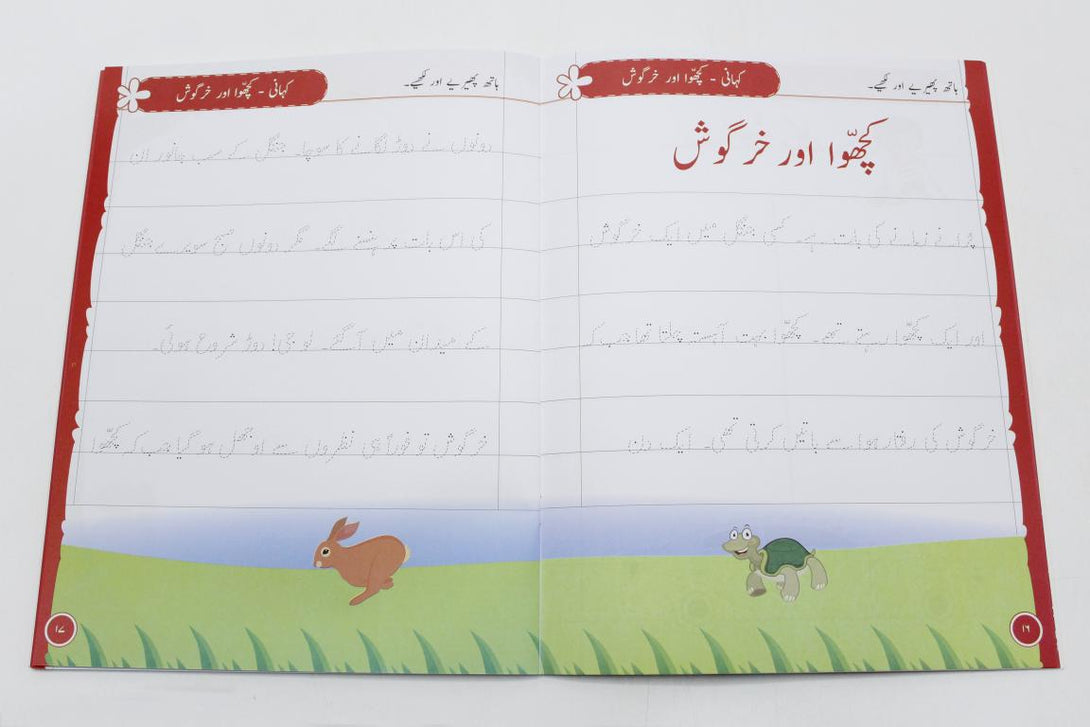 ہاتھ پھیریے اور لکھیے۔
کہانی - کچھّوا اور خرگوش
کچھّوا اور خرگوش
پرانے زمانے کی بات ہے۔ کسی جنگل میں ایک خرگوش
اور ایک کچھّوا رہتے تھے۔ کچھّوا بہت آہستہ چلتا تھا جب کہ
خرگوش کی رفتار ہوا سے باتیں کرتی تھی۔ ایک دن
۱۶
ہاتھ پھیریے اور لکھیے۔
کہانی - کچھّوا اور خرگوش
دونوں نے دوڑ لگانے کا سوچا۔ جنگل کے سب جانور ان
کی اس بات پر ہنسنے لگے۔ مگر دونوں صبح سویرے جنگل
کے میدان میں آ گئے۔ لو جی! دوڑ شروع ہوئی۔
خرگوش تو فوراً ہی نظروں سے اوجھل ہو گیا جب کہ کچھّوا
۱۷